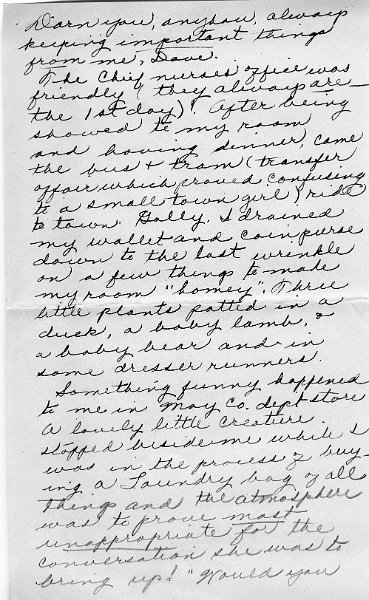 Darn you, anyhow, always
keeping important things
from me, Dave.
The Chief nurses office was
friendly (they always are—
the 1st day)! After being
showed to my room
and having dinner, came
the bus + tram (transfer
affair which proved confusing
to a small town girl) ride
to town. Golly, I drained
my wallet and coin purse
down to the last wrinkle
on a few things to make
my room "homey". Three
little plants potted in a
duck, a baby lamb, &
a baby bear and in
some dresser runners.
Something funny happened
to me in May Co. dept store
A lovely little creature
stopped beside me while I
was in the process of buy-
ing a laundry bag of all
things and the atmosphere
was to prove most
unappropriate for the
conversation she was to
bring up! "Would you